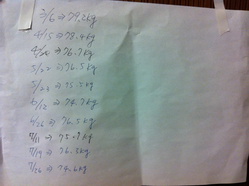 3/6 ⇒ 79.2kg
4/15 ⇒ 78.4kg
4/25 ⇒ 76.7kg
5/22 ⇒ 76.5kg
5/23 ⇒ 75.5kg
6/12 ⇒ 74.7kg
6/26 ⇒ 76.5kg
7/11 ⇒ 75.9kg
7/19 ⇒ 76.2kg
7/26 ⇒ 74.6kg